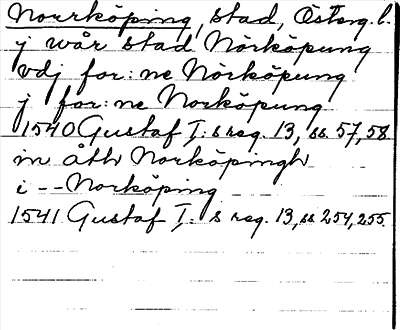 Norrköping, stad, Österg. l.
j wår stad Nörköpung
vdj for: ne Nörköpung
j for: ne Norköpung
1540 Gustaf I: s reg. 13, ss. 57, 58
in åth Norköpingh
i -- Norköping
1541 Gustaf I: s reg. 13, ss 254, 255.